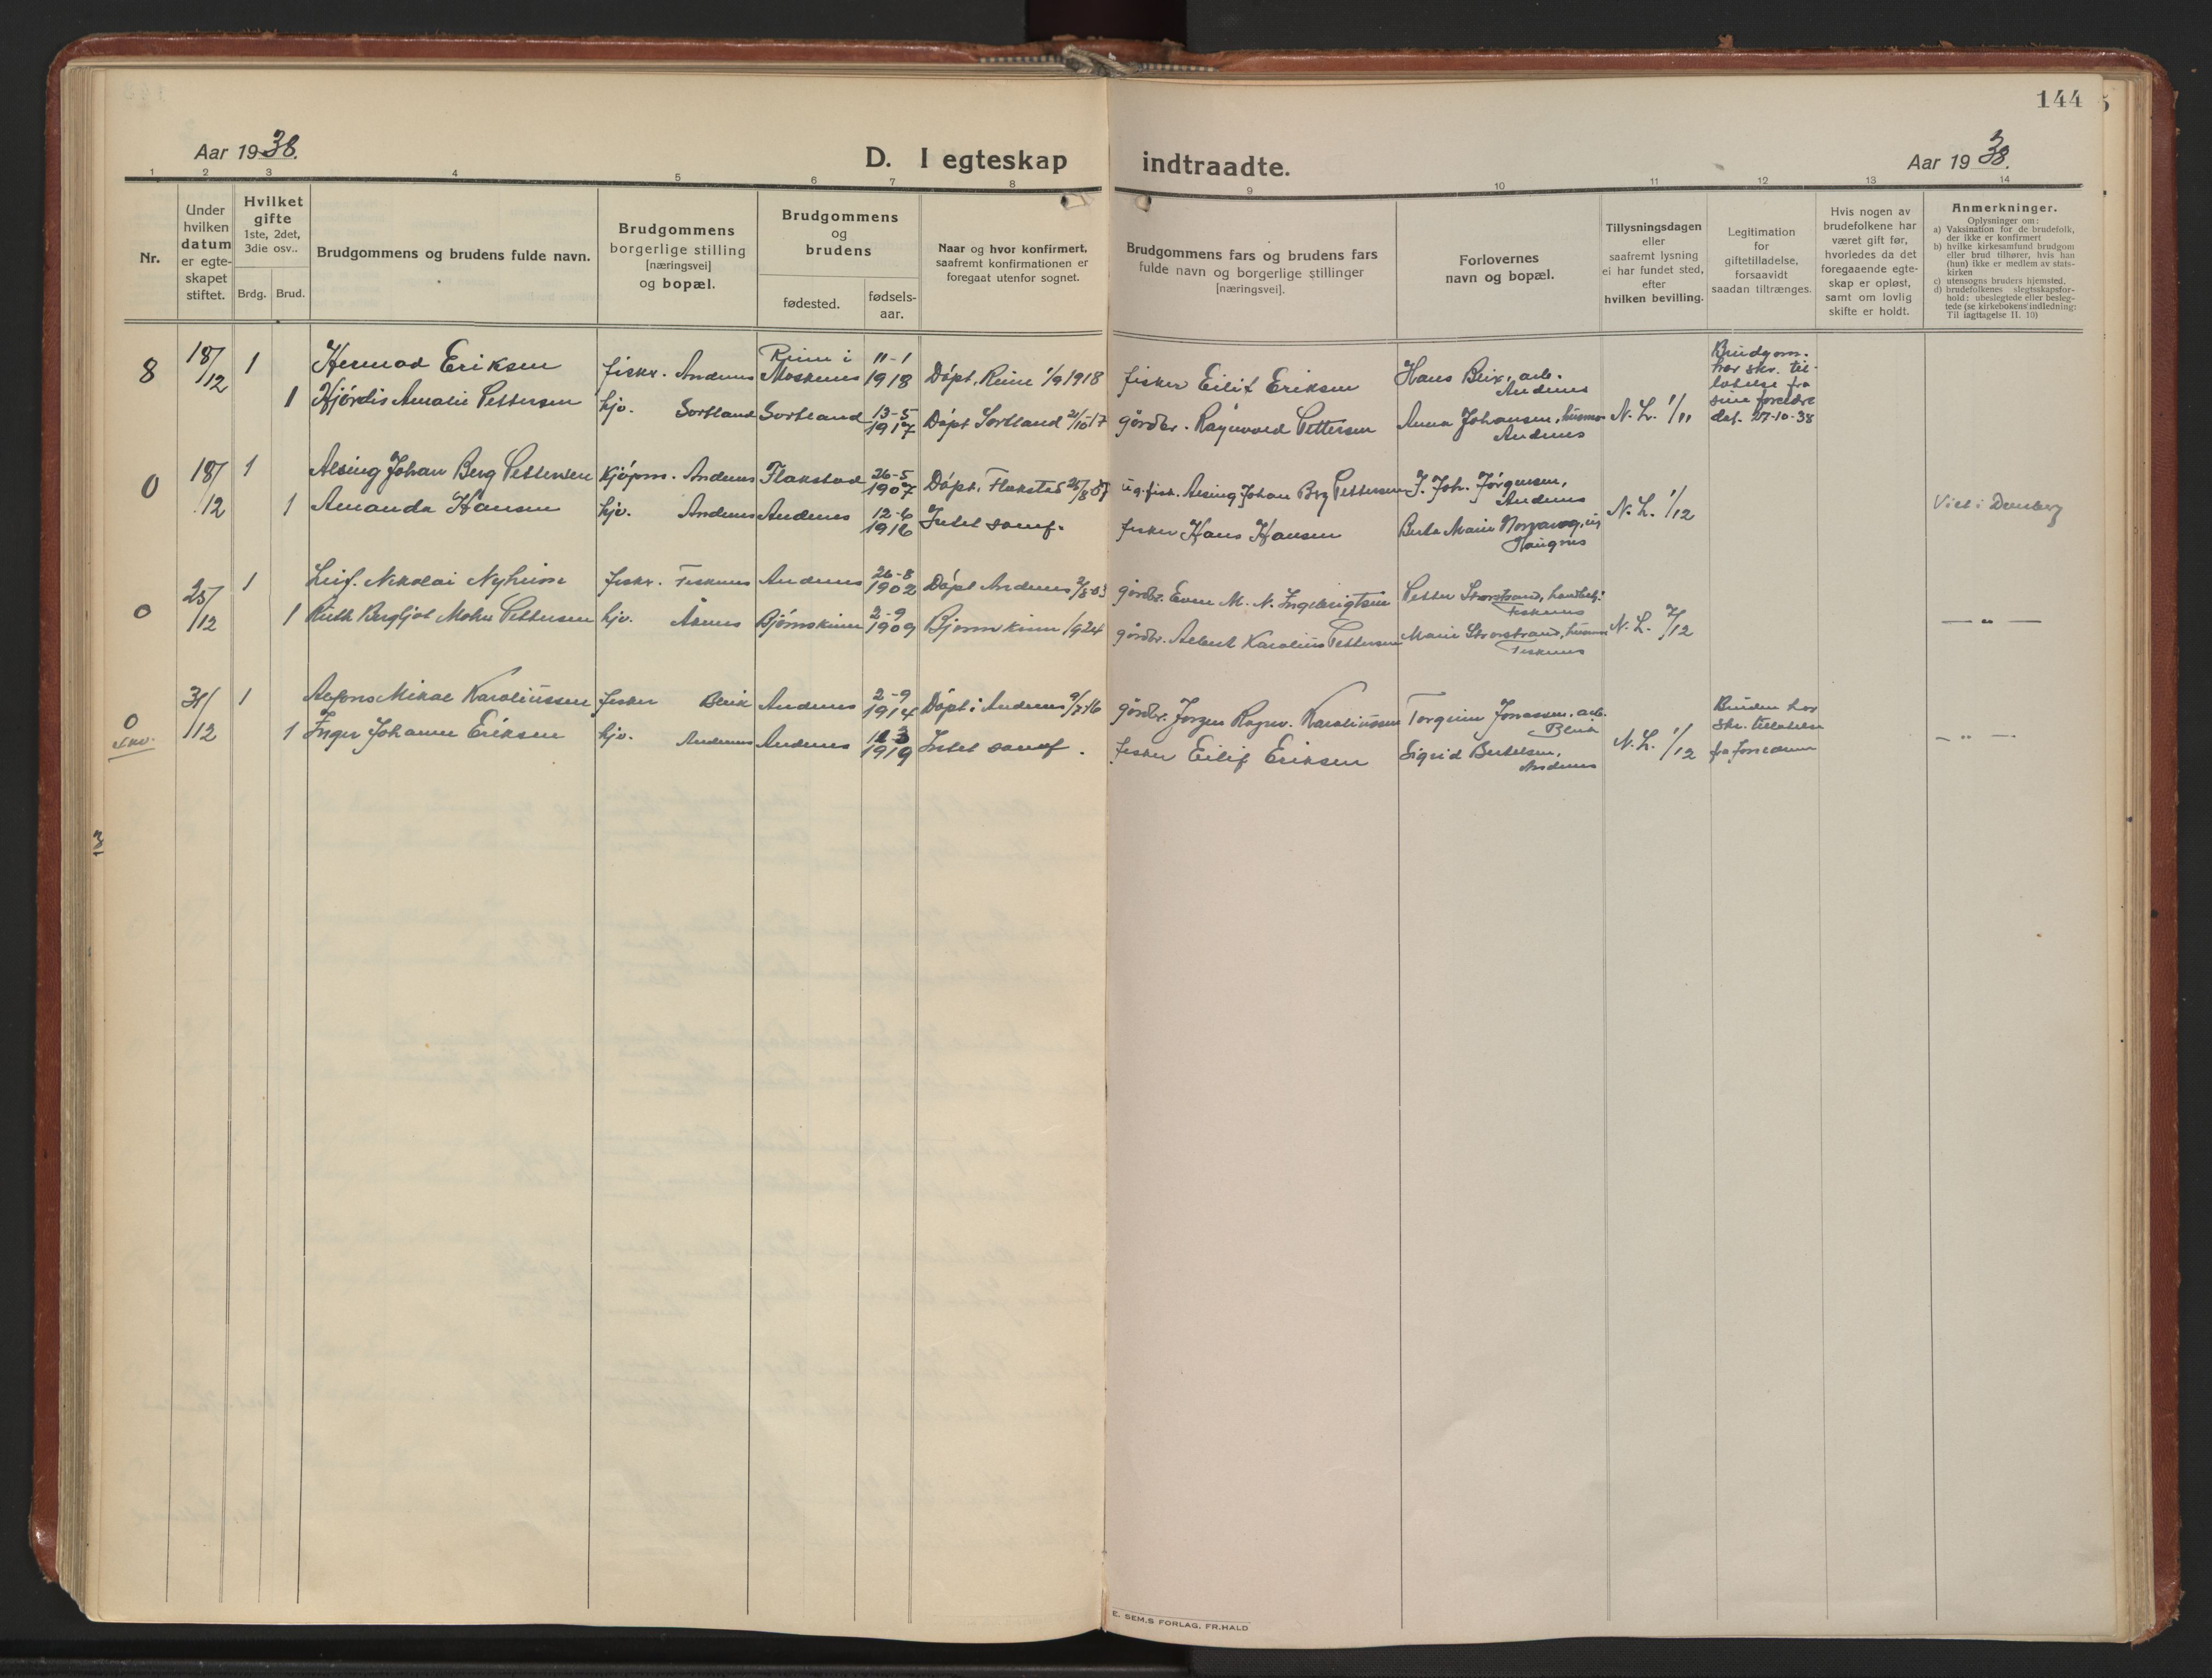 144
Aar 1938.
D. I egteskap indtraadte.
Aar 1938.
1 2 3 4 5 6 7 8 9 10 11 12 13 14
Nr.
Under hvilken datum er egte-skapet stiftet.
Hvilket gifte 1ste, 2det, 3die osv..
Brdg. Brud.
Brudgommens og brudens fulde navn.
Brudgommens borgerlige stilling [næringsvei] og bopæl.
Brudgommens og brudens
fødested. fødsels-aar.
Naar og hvor konfirmert, saafremt konfirmationen er foregaat utenfor sognet.
Brudgommens fars og brudens fars fulde navn og borgerlige stillinger [næringsvei].
Forlovernes navn og bopæl.
Tillysningsdagen eller saafremt lysning ei har fundet sted, efter hvilken bevilling.
Legitimation for giftetilladelse, forsaavidt saadan tiltrænges.
Hvis nogen av brudefolkene har været gift før, hvorledes da det foregaaende egte-skap er opløst, samt om lovlig skifte er holdt.
Anmerkninger.
Oplysninger om:
a) Vaksination for de brudefolk, der ikke er konfirmert
b) hvilke kirkesamfund brudgom eller brud tilhører, hvis han (hun) ikke er medlem av stats-kirken
c) utensogns bruders hjemsted.
d) brudefolkenes slegtsskapsfor-hold: ubeslegtede eller besleg-tede (se kirkebokens indledning: Til iagttagelse II. 10)
8 18/12 1 Hermod Eriksen fiskr. Andenes Reine i Moskenes 11-1 1918 Døpt. Reine 1/9 1918 fisker Eilif Eriksen Hans Blix, arb. Andenes
1 Hjørdis Amalie Pettersen hjv. Sortland Sortland 13-5 1917 Døpt Sortland 21/10-17 gårdbr. Ragnvald Pettersen Anna Johansen, husmor Andenes N. L. 1/11
Brudgom. har skr. til-latelse fra sine foreldre dat. 27-10-38
0 18/12 1 Alsing Johan Berg Pettersen Kjøpm. Andenes Flakstad 26-5 1907 Døpt. Flakstad 25/8-07 ug. fisk. Alsing Johan Brg Pettersen J. Joh. Jørgensen, Andenes
1 Amanda Hansen hjv. Andenes Andenes 12-6 1916 Intet samf. fisker Hans Hansen Berta Marie Haugnes N. L. 1/12
Viet i Dverberg
0 25/12 1 Leif. Nikolai Nyheim fiskr. Fiskenes Andenes 26-8 1902 Døpt Andenes gårdbr. Even M. N. Ingebrigtsen Petter Storstrand, Fiskenes
1 Ruth Bergljot Mohn Pettersen hjv. Åknes Bjørnskinn 2-9 1909 Bjørnskinn 1/9 24 gårdbr. Albert Karolius Pettersen Marie Storstrand, husmor Fiskenes N. L. 7/12
— " —
0 31/12 1 Alfons Mikal Karoliussen fisker Bleik Andenes 2-9 1914 Døpt i Andenes 9/7-16 gårdbr. Jørgen Ragnv. Karoliussen Torgeim Jonassen, arb. Bleik
1 Inger Johanne Eriksen hjv. Andenes Andenes 1919 Intet samf. fisker Eilif Eriksen Sigrid Bertelsen, Andenes N. L. 1/12
Bruden har skr. tillatelse fra foreldrene
— " —
13
E. SEM.S FORLAG, FR.HALD